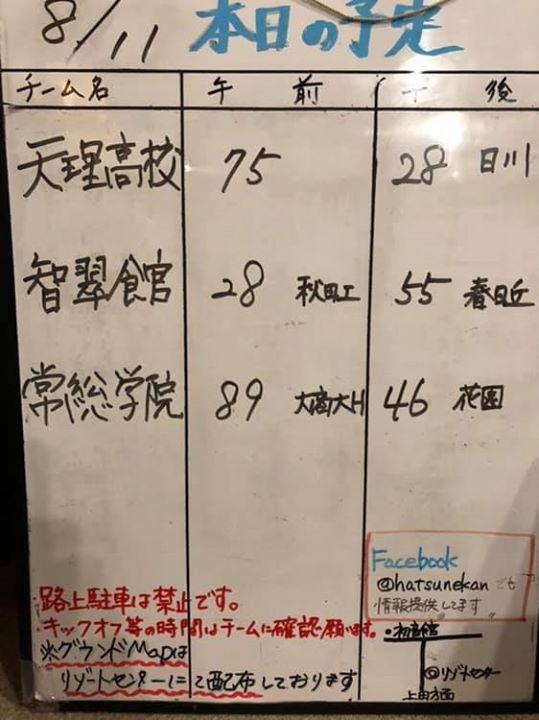 8/11 本日の予定
チーム名 午前 午後
天理高校 75 28 日川
智翠館官 28 秋田工 55 春日丘
常総学院 89 大商大付 46 花園
Facebook
@hatsunekan でも
情報提供してます
・路上駐車は禁止です。
・キックオフ等の時間はチームに確認願います。
※グランドMapは
リゾートセンターにて配布しております
・初音館
◎リゾートセンター
上田方面